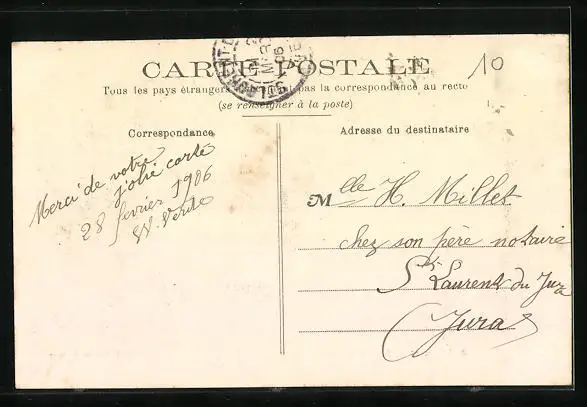 CARTE POSTALE
Tous les pays étrangers pas la correspondance au recto
(se renseigner à la poste)
10
ST LAURENT-D
06
Correspondance
Merci de votre
jolie carte
28 fevrier 1906
Adresse du destinataire
Mlle H. Millet
chez son père notaire
St Laurent du Jura
Jura